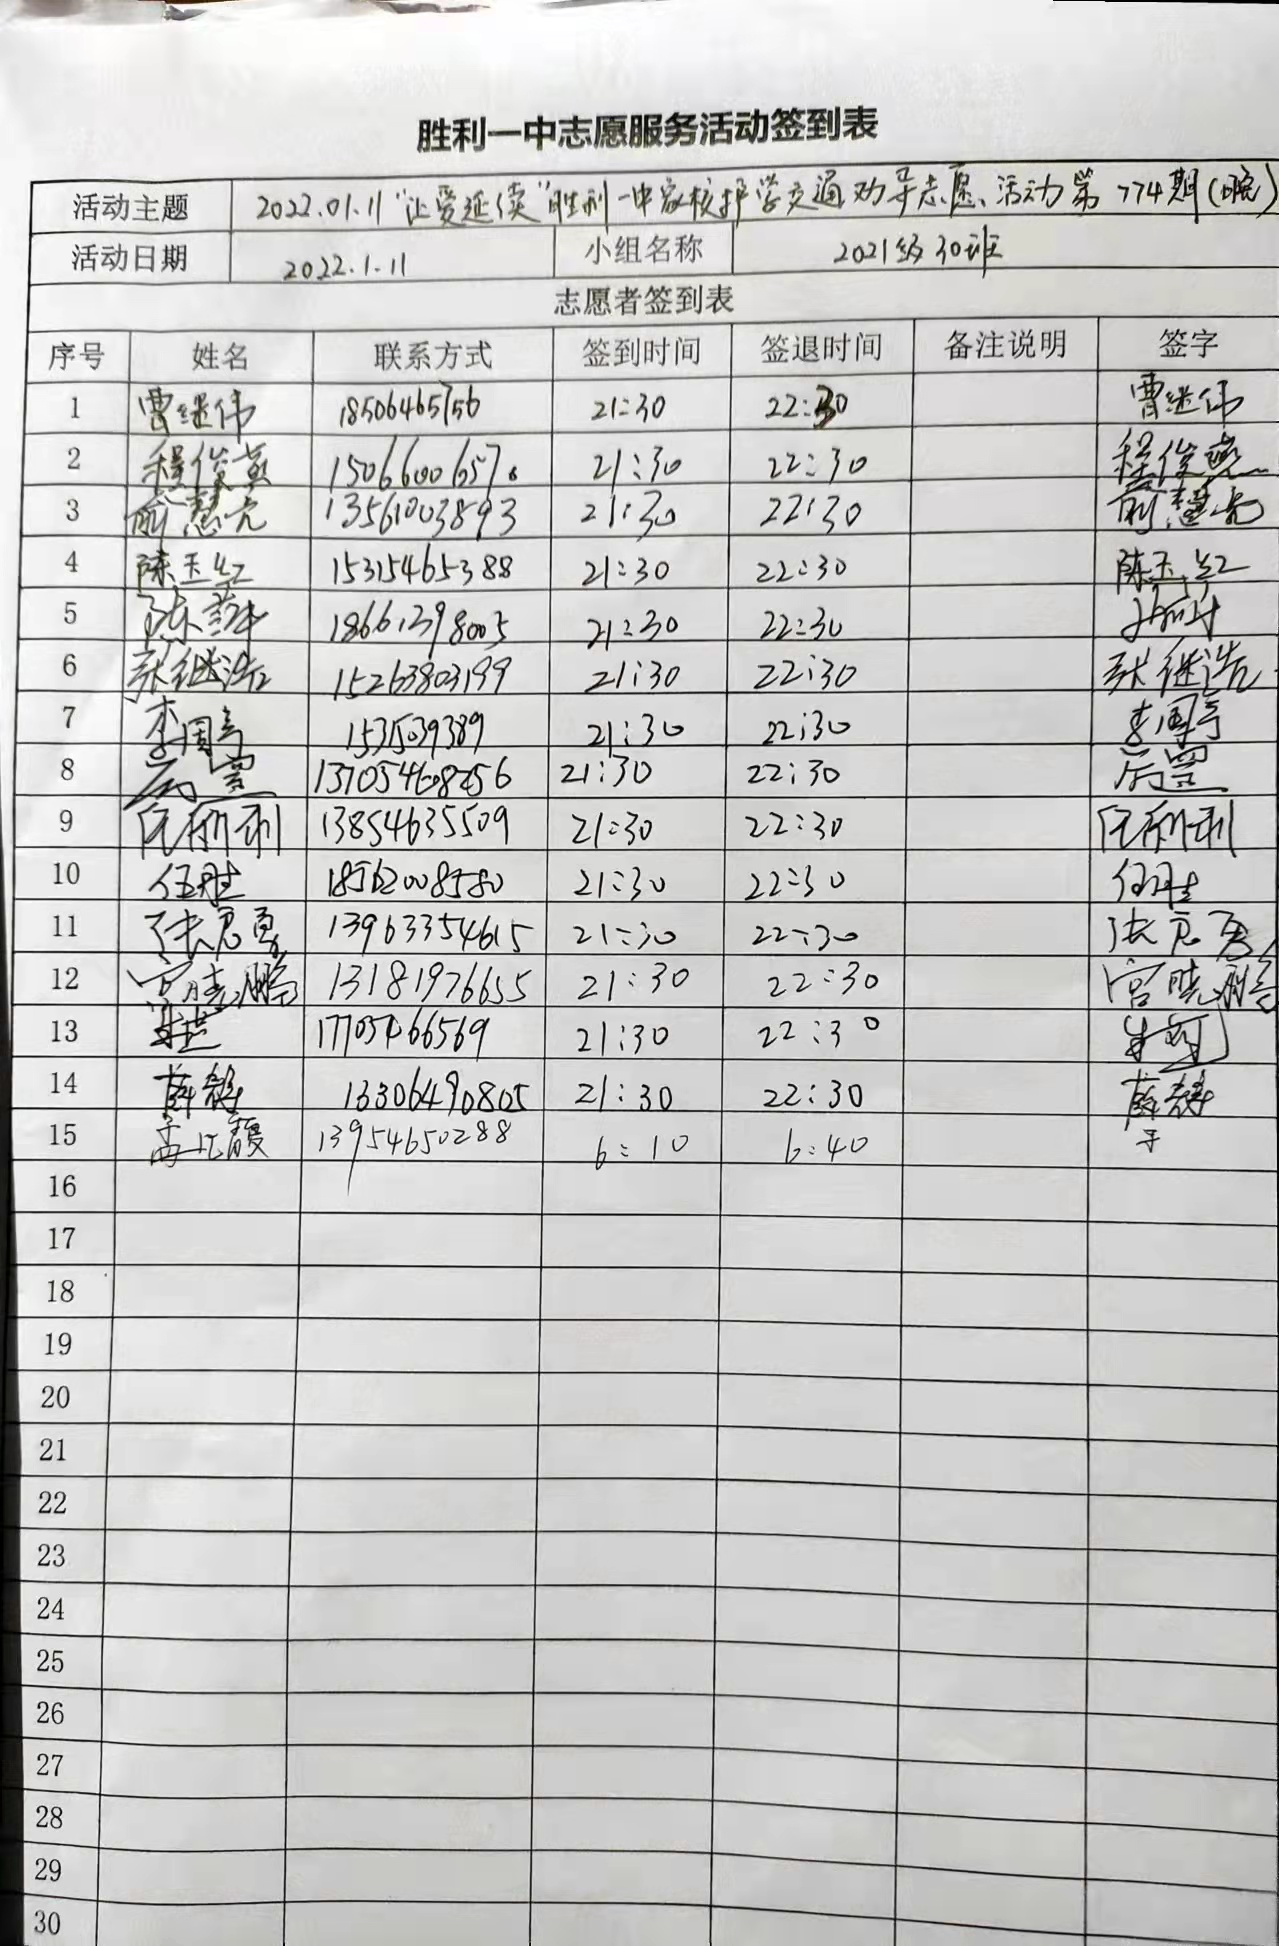 胜利一中志愿服务活动签到表
活动主题 2022.01.11 "让爱延续"胜利一中家校护学交通劝导志愿活动第774期(晚)
活动日期 2022.1.11 小组名称 2021级30班
志愿者签到表
序号 姓名 联系方式 签到时间 签退时间 备注说明 签字
1 曹继伟 18506465756 21:30 22:30 曹继伟
2 程俊燕 21:30 22:30 程俊燕
3 13561003893 21:30 22:30
4 陈玉红 15315465388 21:30 22:30 陈玉红
5 21:30 22:30
6 张继浩 15263803199 21:30 22:30 张继浩
7 李周亭 21:30 22:30 李周亭
8 21:30 22:30
9 13854635509 21:30 22:30
10 任胜 18562008580 21:30 22:30 任胜
11 13963354615 21:30 22:30
12 宫晓鹏 13181976655 21:30 22:30 宫晓鹏
13 17705466569 21:30 22:30
14 13306490805 21:30 22:30
15 13954650288 6:10 6:40
16
17
18
19
20
21
22
23
24
25
26
27
28
29
30